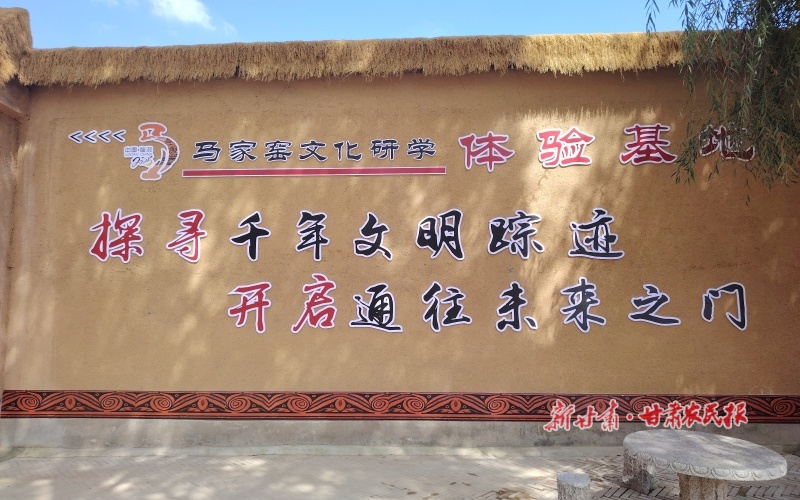 <<<< 马家窑文化研学 体验基地
中国·临洮
探寻千年文明踪迹
开启通往未来之门
新甘肃·甘肃农民报